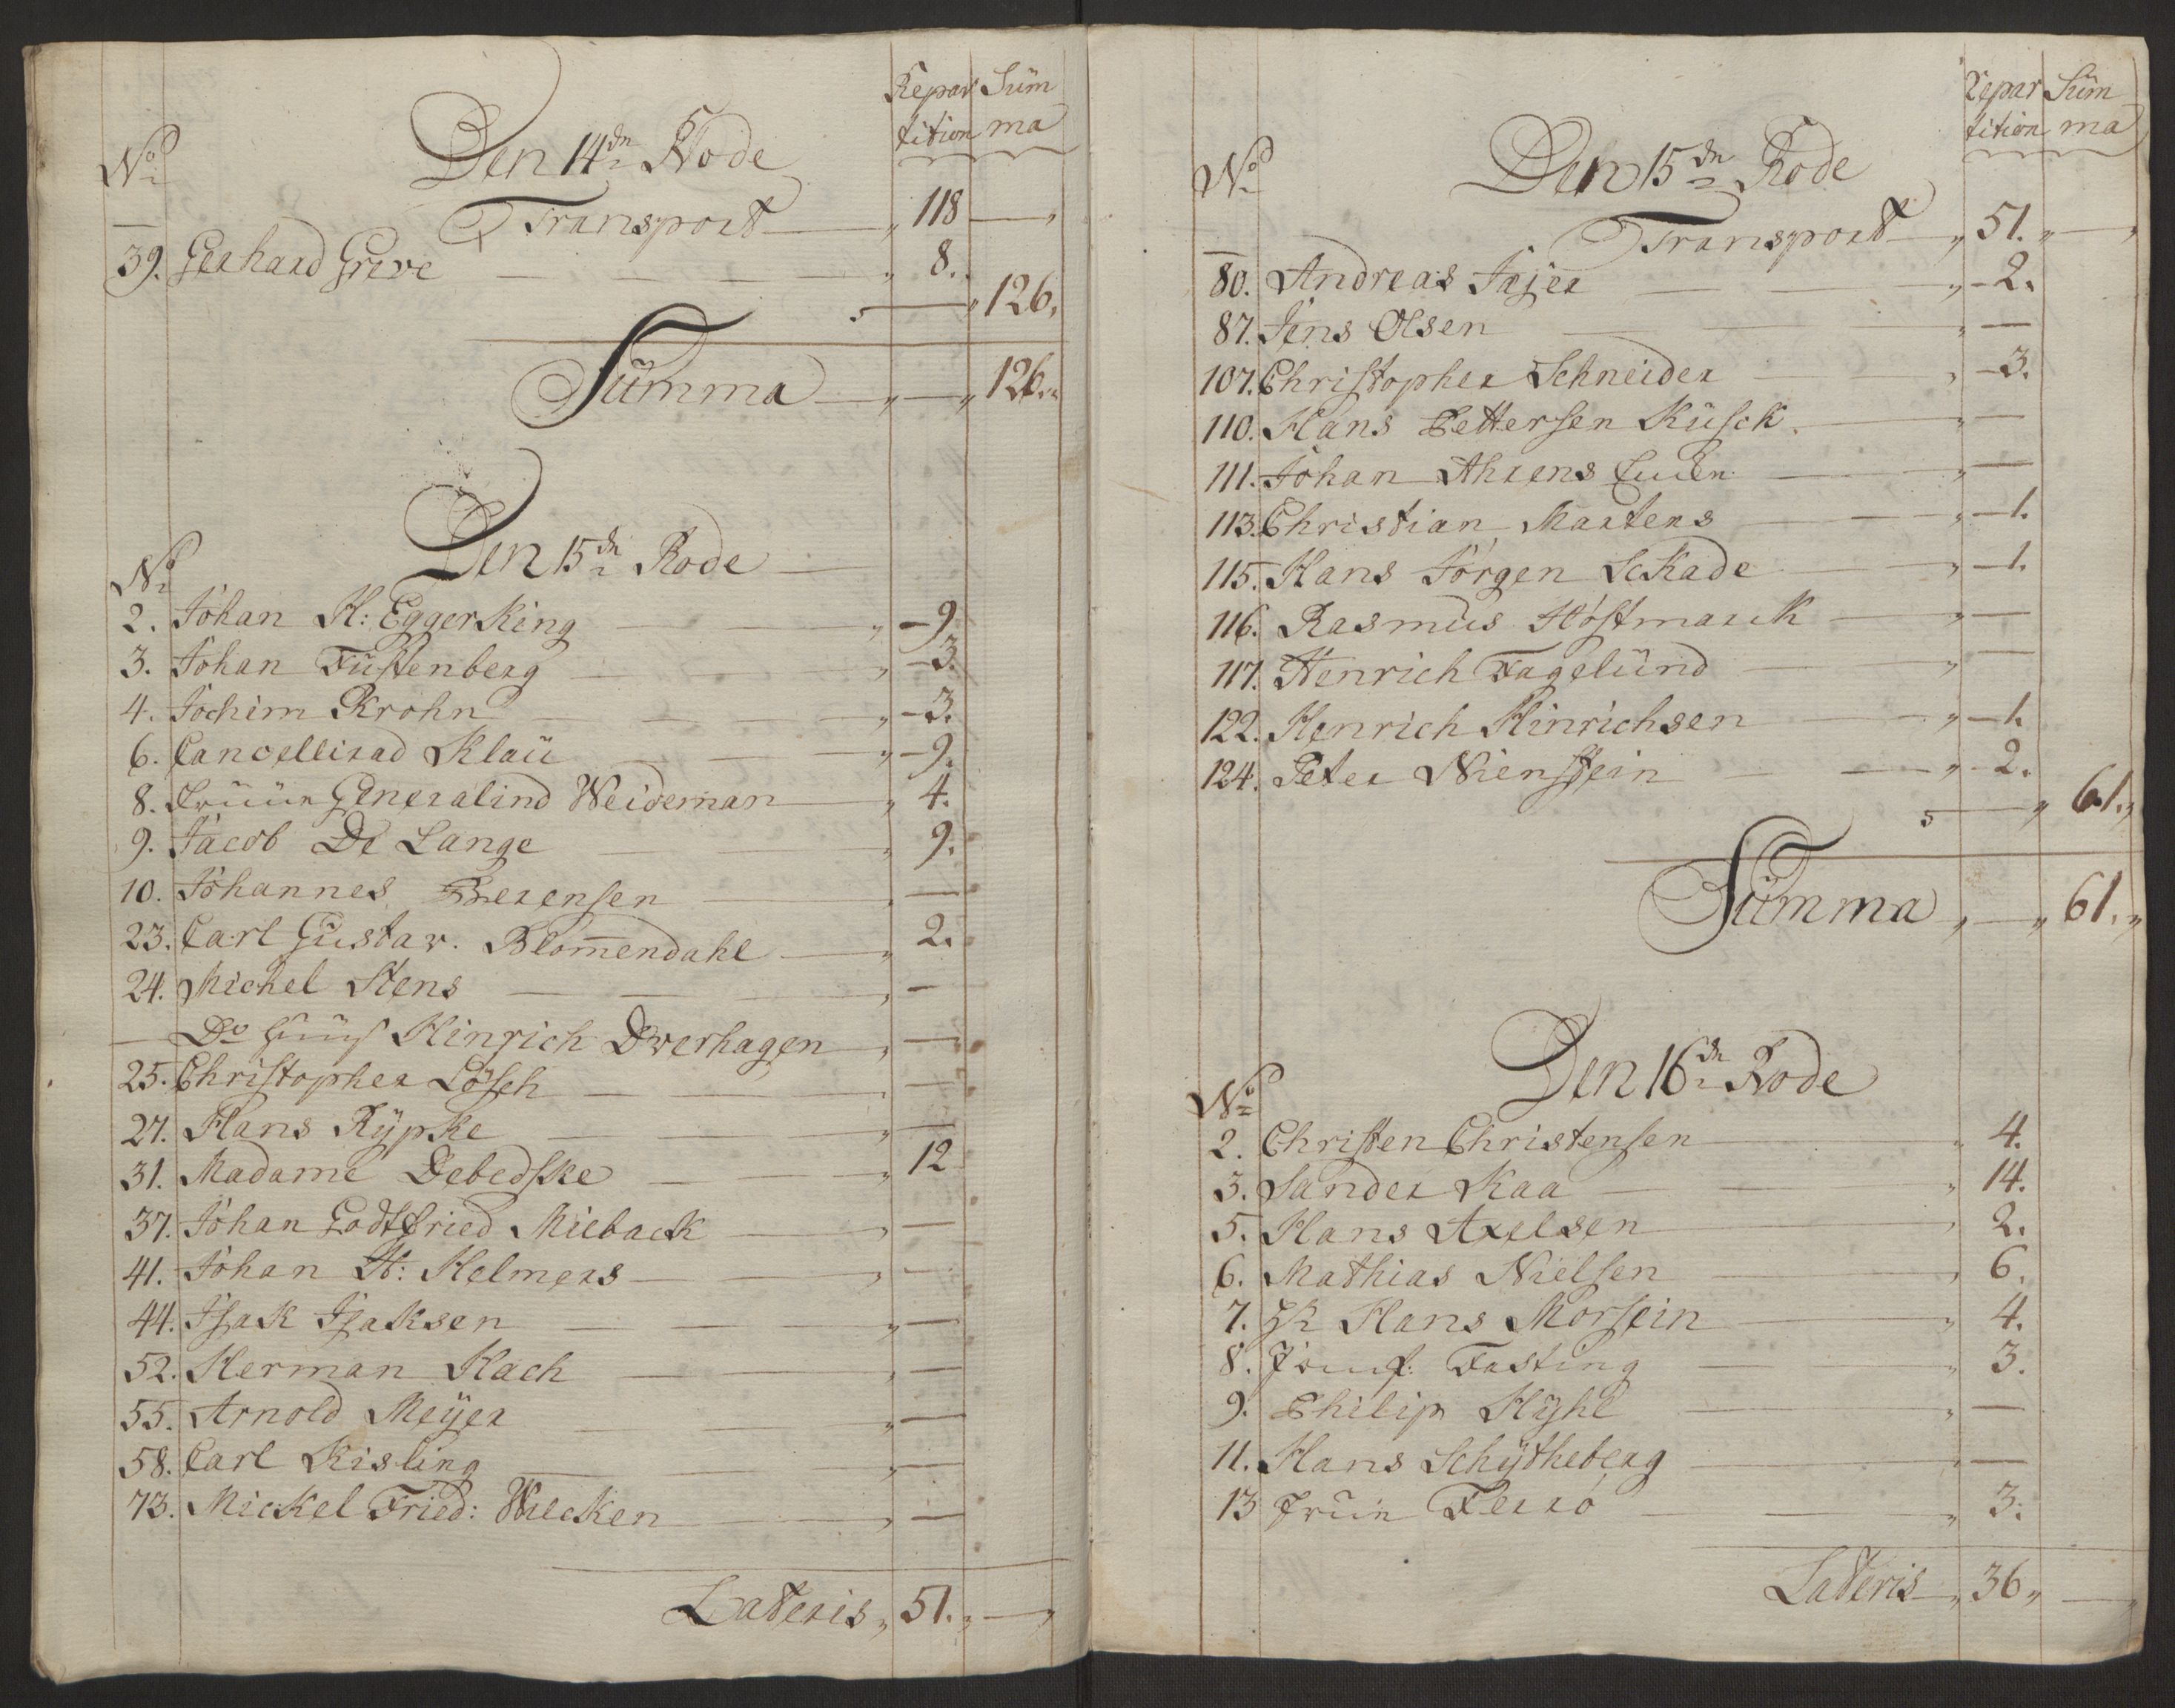 Repar Süm
tition ma
No Den 14de Rode
Transport 118
39. Gerhard Greve 8.
126.
Summa 126.
Den 15de Rode
No
2. Johan H: Eggerking 9
3. Johan Fustenberg 3.
4. Jochim Krohn 3.
6. Cancellirad Klaü 9.
8. Generalind Weideman 4.
9. Jacob De Lange 9.
10. Johannes Berensen —
23. Carl Gustav. Blom̅endahl 2.
24. Michel Stens —
— Do Hinrich Dverhagen —
25. Christopher Lösch —
27. Hans Rÿpke —
31. Madame Debedske 12
37. Johan Godtfried Mieback —
41. Johan H: Helmers —
44. Isak Isaksen —
52. Herman Hach —
55. Arnold Meÿer —
58. Carl Kisling —
73. Mickel Fried: Wecken —
Lateris 51.
Repar Süm
tition ma
No Den 15de Rode
Transport 51.
80. Andreas Jajer 2.
87. Jens Olsen —
107. Christopher Schneider 3.
110. Hans Pettersen Kusck. —
111. Johan Ahrens —
113. Christian Martens 1.
115. Hans Jörgen Sckade 1.
116. Rasmus Höstmarck —
117. Henrich Fagelünd —
122. Henrich Hinrichsen 1.
124. Peter Nienstein 2.
61.
Summa 61.
Den 16de Rode
No
2. Christen Christensen 4.
3. Sander Kaa 14.
5. Hans Axelsen 2.
6. Mathias Nielsen 6.
7. Hr Hans Morsein 4.
8. Jomf: Fasting 3.
9. Philip Hÿhl —
11. Hans Schÿtheberg —
13 Frue Ferrö 3.
Lateris 36